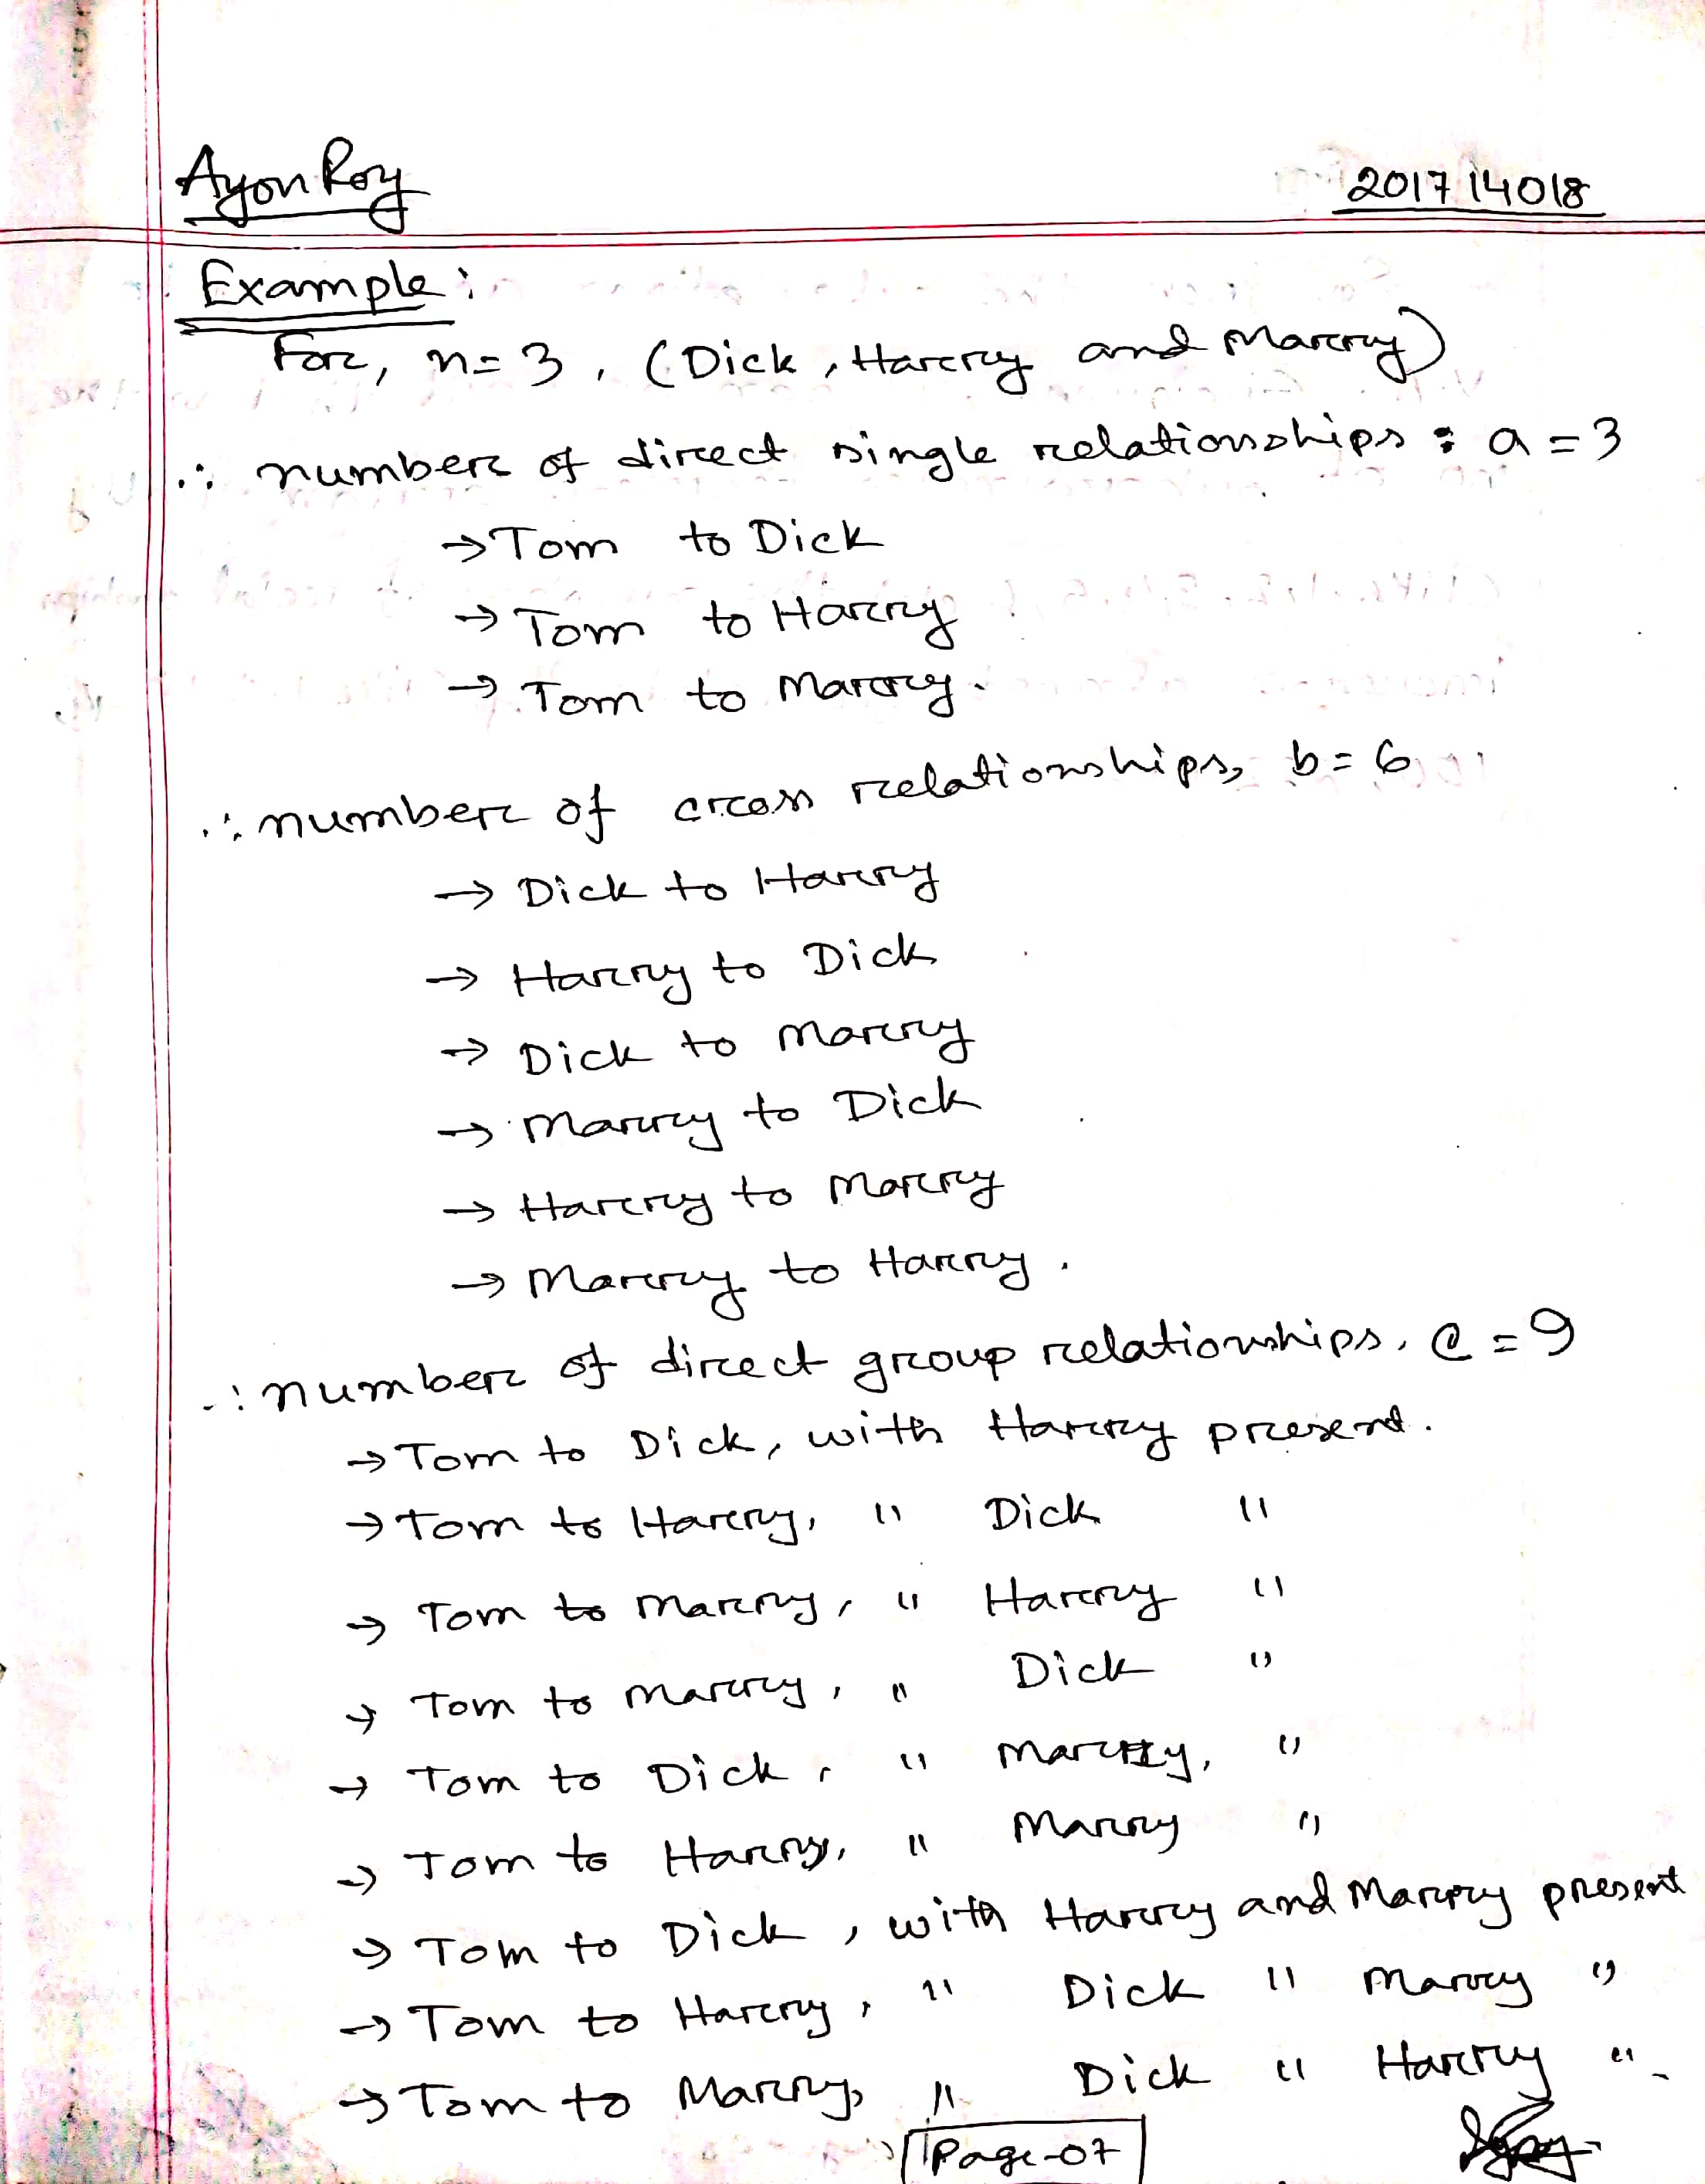 Ayon Roy
201714018
Example:
For, n=3, (Dick, Harry and Marry)
∴ number of direct single relationships: a=3
→ Tom to Dick
→ Tom to Harry
→ Tom to Marry.
∴ number of cross relationships, b=6
→ Dick to Harry
→ Harry to Dick
→ Dick to Marry
→ Marry to Dick
→ Harry to Marry
→ Marry to Harry.
∴ number of direct group relationships, c=9
→ Tom to Dick, with Harry present.
→ Tom to Harry, " Dick "
→ Tom to Marry, " Harry "
→ Tom to Marry, " Dick "
→ Tom to Dick, " Marry, "
→ Tom to Harry, " Marry "
→ Tom to Dick, with Harry and Marry present
→ Tom to Harry, " Dick " Marry "
→ Tom to Marry, " Dick " Harry ".
Page-07